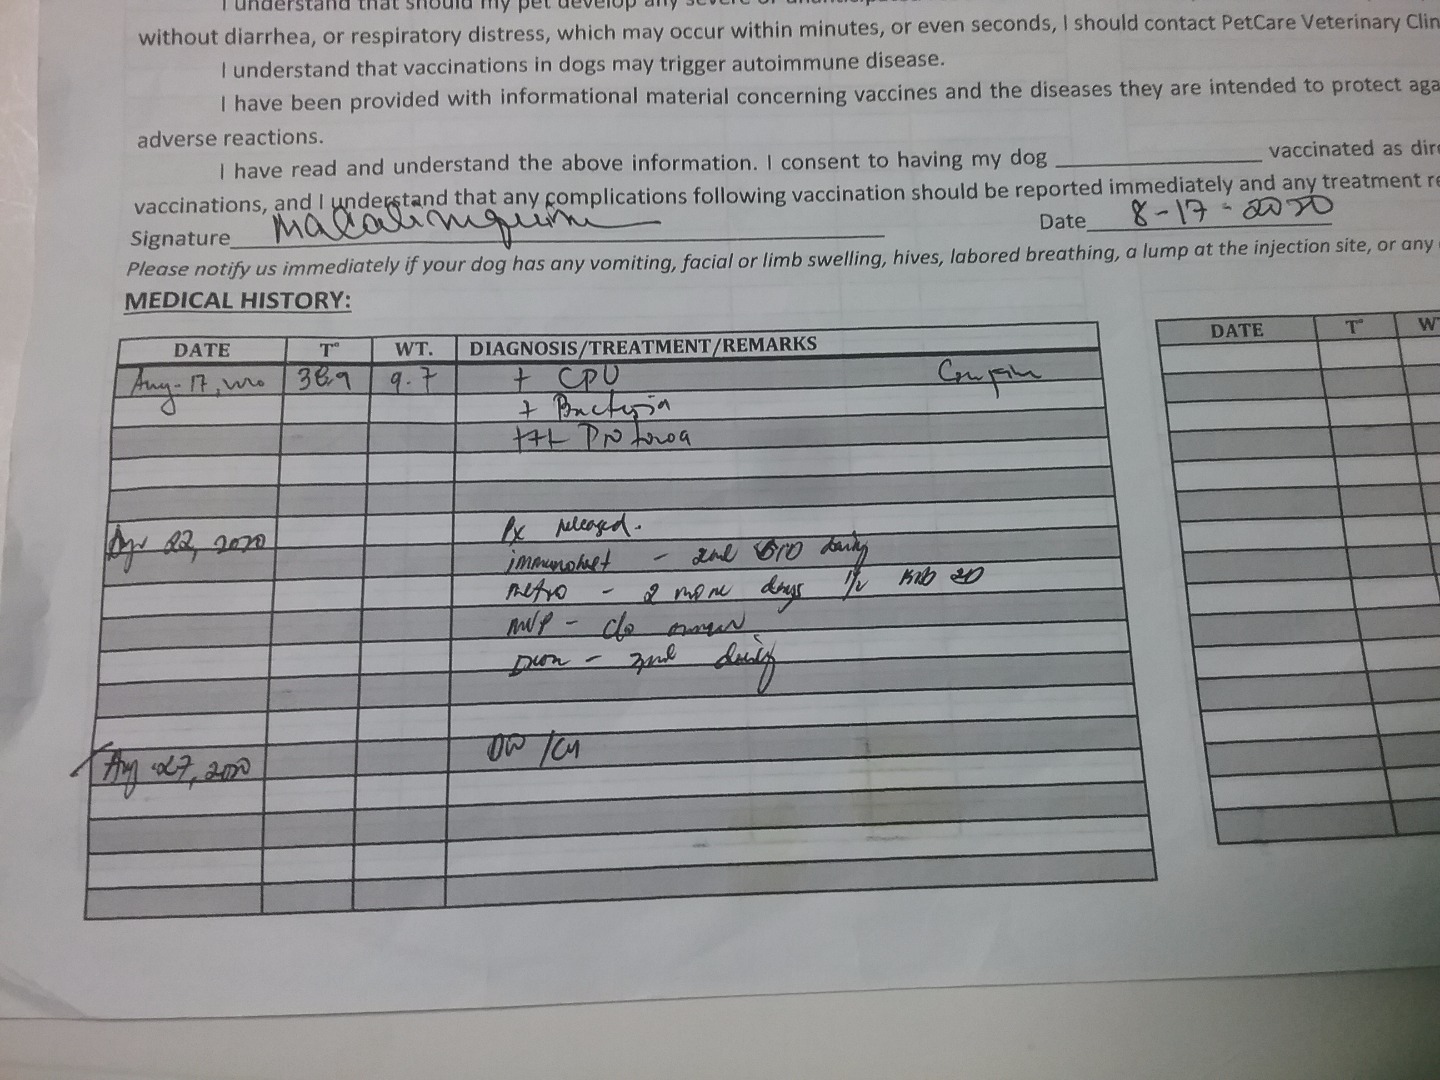 I understand that should my pet develop any severe or
without diarrhea, or respiratory distress, which may occur within minutes, or even seconds, I should contact PetCare Veterinary Clin
I understand that vaccinations in dogs may trigger autoimmune disease.
I have been provided with informational material concerning vaccines and the diseases they are intended to protect aga
adverse reactions.
I have read and understand the above information. I consent to having my dog ____________ vaccinated as dire
vaccinations, and I understand that any complications following vaccination should be reported immediately and any treatment re
Signature Date 8-17-2020
Please notify us immediately if your dog has any vomiting, facial or limb swelling, hives, labored breathing, a lump at the injection site, or any
MEDICAL HISTORY:
DATE T° WT. DIAGNOSIS/TREATMENT/REMARKS DATE T° W
Aug. 17, 38.9 9.7 + CPU
+ Bacteria
+++ Protozoa
22, 2020 Px released.
- 2ml BID daily
metro - 2 more days
- c/o
- 3ml daily
Aug 27, 2020